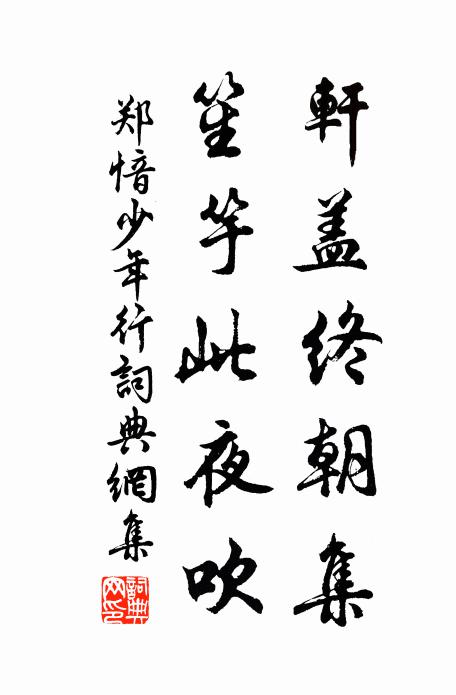 軒盖终朝集
笙竽此夜吹
郑愔少年行詞典網集
詞典網印